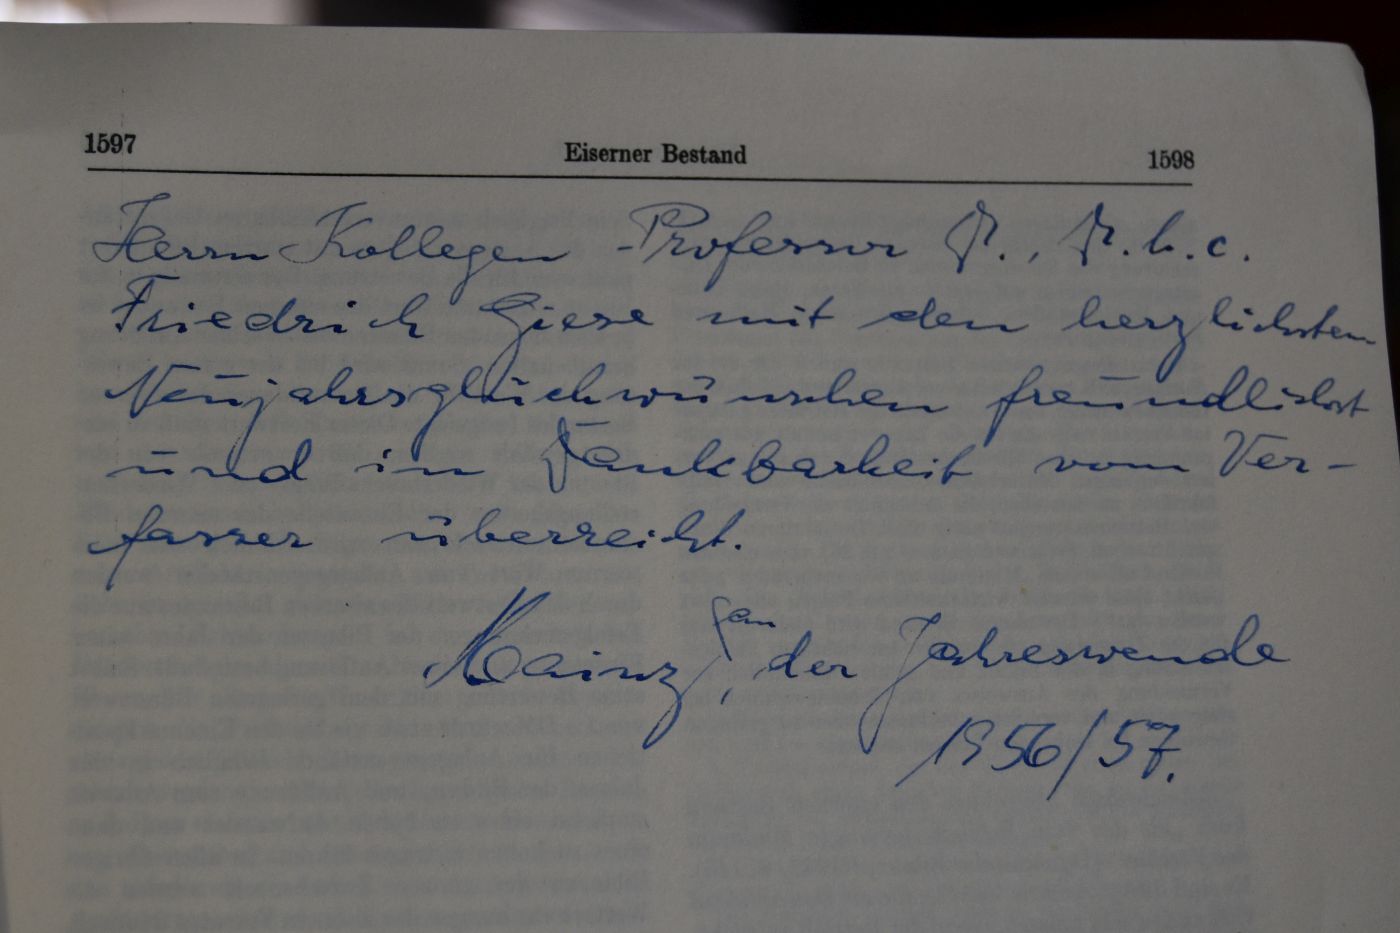 1597 Eiserner Bestand 1598
Herrn Kollegen Professor Dr., Dr. h. c.
Friedrich Giese mit den herzlichsten
Neujahrsglückwünschen freundlichst
und in Dankbarkeit vom Ver-
fasser überreicht.
Mainz, an der Jahreswende
1956/57.